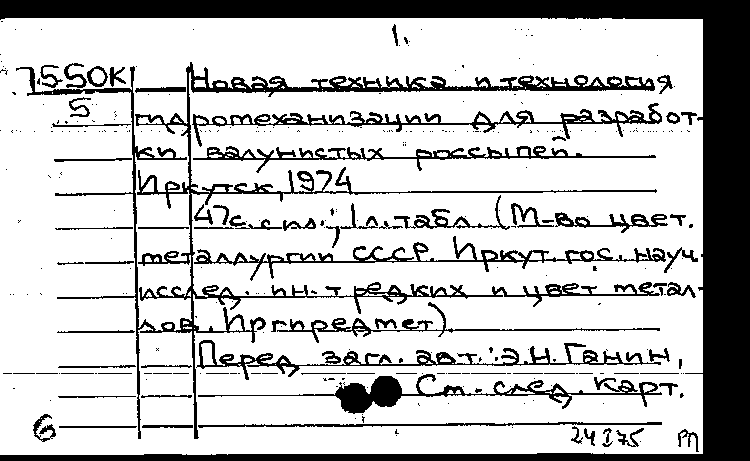 1.
7550К Новая техника и технология
5 гидромеханизации для разработ-
ки валунистых россыпей.
Иркутск, 1974
47с. с ил.; 1л. табл. (М-во цвет.
металлургии СССР. Иркут. гос. науч.-
исслед. ин-т редких и цвет. метал-
лов. Иргиредмет).
Перед загл. авт.: Э.Н. Ганин,
См. след. карт.
6
24 I 75 РП